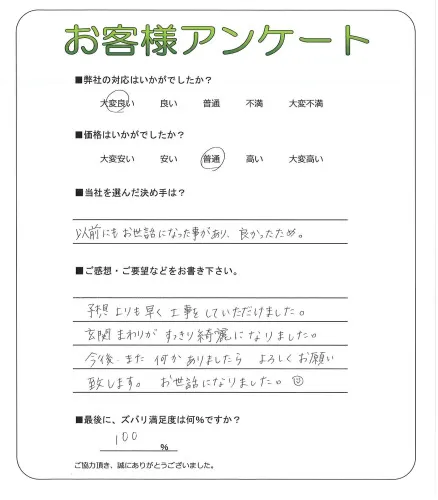 お客様アンケート
■弊社の対応はいかがでしたか？
大変良い 良い 普通 不満 大変不満
■価格はいかがでしたか？
大変安い 安い 普通 高い 大変高い
■当社を選んだ決め手は？
以前にもお世話になった事があり、良かったため。
■ご感想・ご要望などをお書き下さい。
予想よりも早く工事をしていただけました。
玄関まわりがすっきり綺麗になりました。
今後 また 何かありましたら よろしくお願い
致します。 お世話になりました。
■最後に、ズバリ満足度は何%ですか？
100 %
ご協力頂き、誠にありがとうございました。